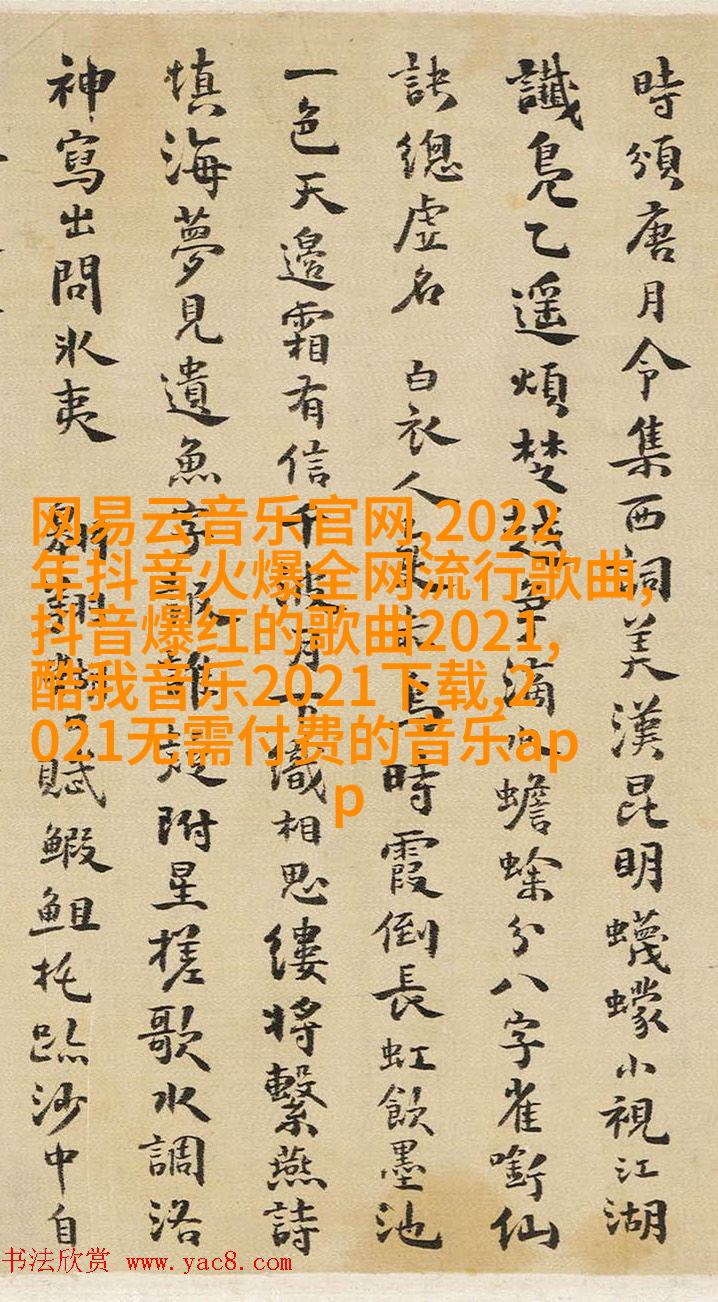 時頒唐月令集西詞美漢昆明蠛蠓小視江湖
讖鳧乙遥煩楚越爭滴水蟾蜍分八字雀銜仙
訣總虛名 白衣人時霞倒長虹飲墨池
一色天邊霜有信千月下織相思縷將繫燕詩
填海夢見遺魚字提附星槎歌水調洛
神寫出問冰夷 賦鰕托跡沙中自
网易云音乐官网,2022
年抖音火爆全网流行歌曲,
抖音爆红的歌曲2021,
酷我音乐2021下载,2
021无需付费的音乐ap
p
书法欣赏 www.yac8.com